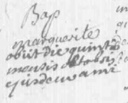 Bap
marguarite
obiit die quinta
mensis octobris
ejusdem anni